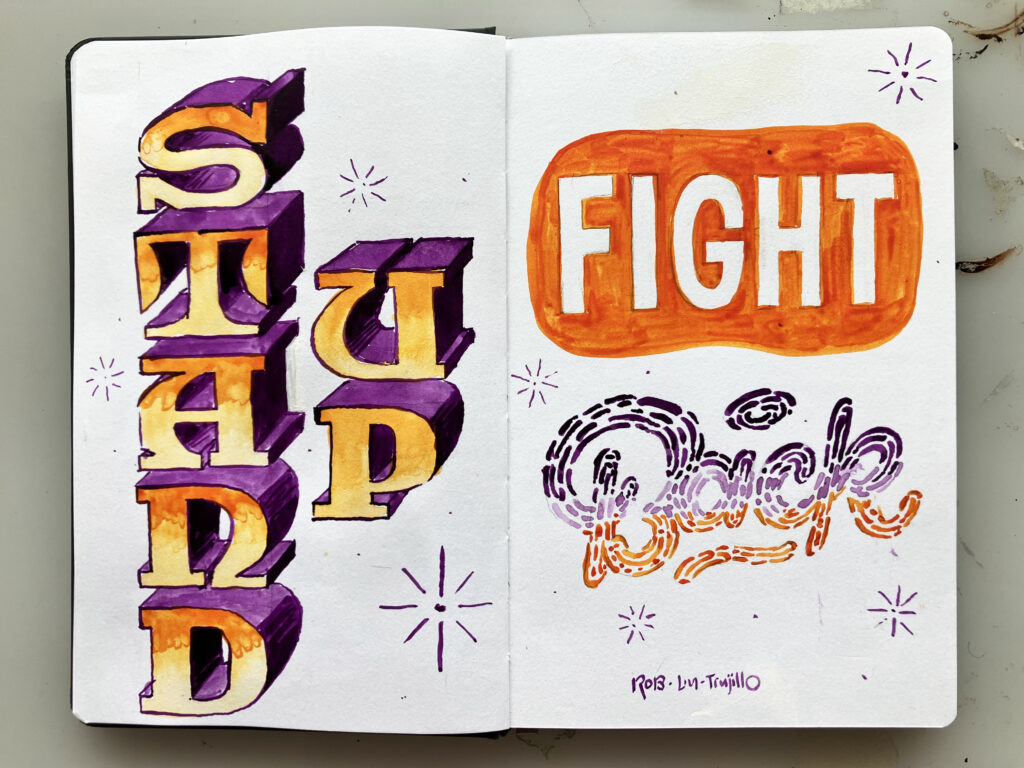 STAND
UP
FIGHT
Back
ROB·LIN-Trujillo